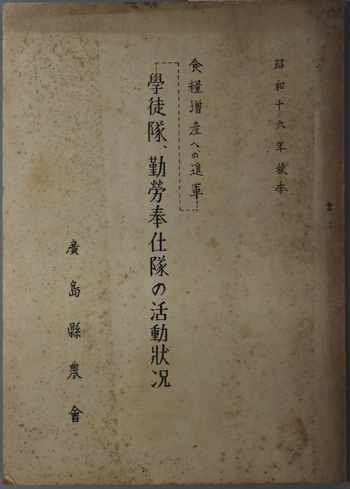 昭和十六年秋季
食糧増産への進軍
學徒隊、勤勞奉仕隊の活動狀況
廣島縣農會